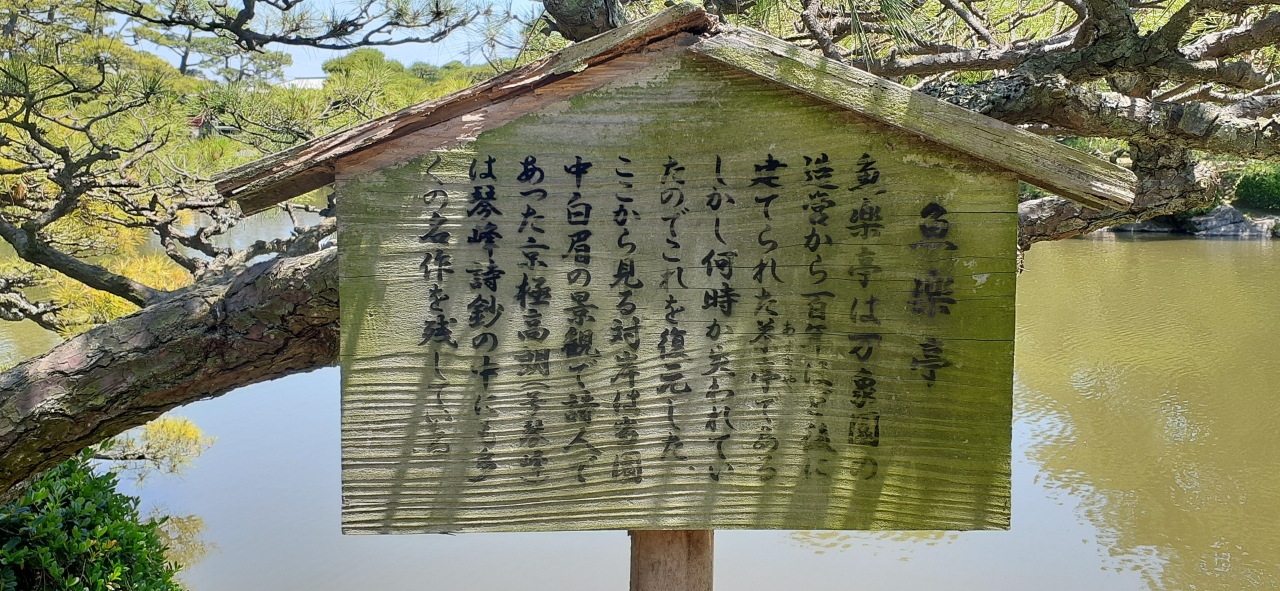 魚樂亭
魚樂亭は万象園の
造営から百年ほど後に
建てられた亭である
しかし何時か失われてい
たのでこれを復元した、
ここから見る対岸は当園
中白眉の景観で詩人で
あつた京極高朗(号琴峰)
は琴峰詩鈔の中にも多
くの名作を残している